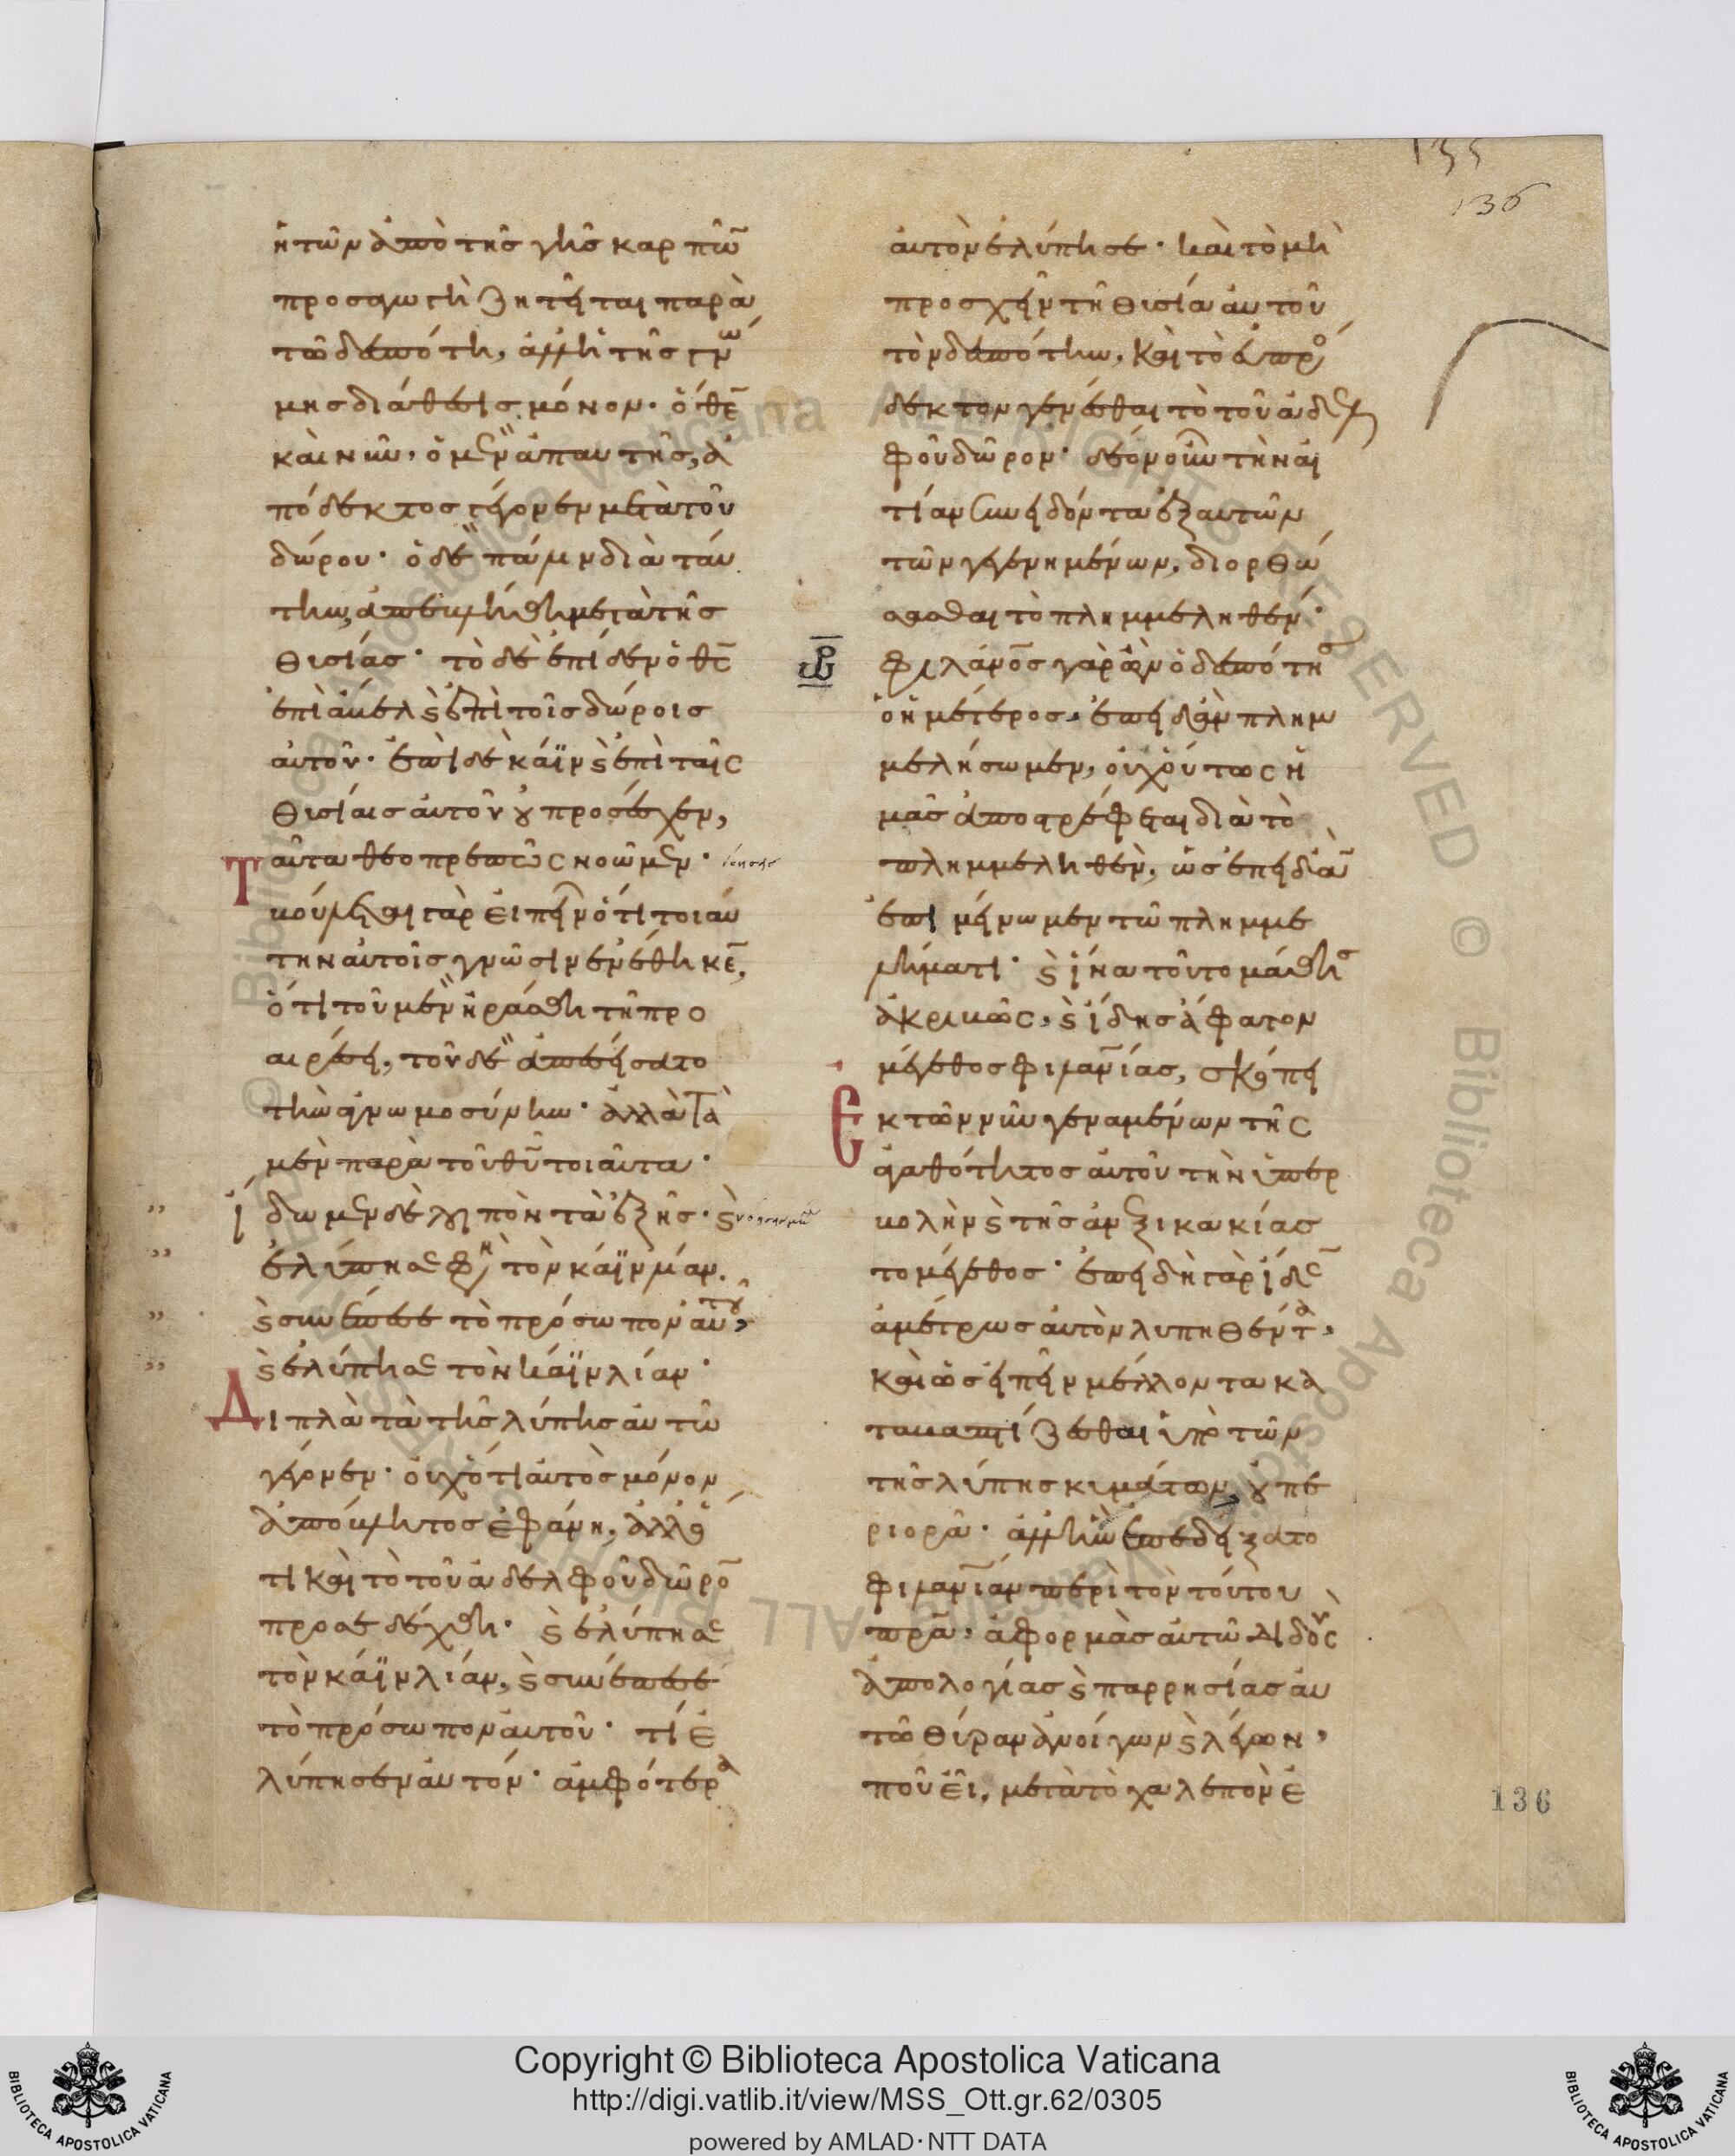 135
136
ἢ τῶν ἀπὸ τῆς γῆς καρπῶ̅
προσαγωγὴ ζητεῖται παρὰ
τῶ δεσπότη, ἀλλ' ἡ τῆς γνώ
μης διάθεσις μόνον. ὅθε̅
καὶ νῦν. ὁ μὲν ἀπαυτῆς, ἀ
πόδεκτος γέγονεν μετὰ τοῦ
δώρου. ὁ δὲ πάλιν διὰ ταύ
την, ἀπεβλήθη μετὰ τῆς
θυσίας. τὸ δὲ ἐπίδεν ὁ θς̅
ἐπὶ ἄβελ ϗ ἐπὶ τοῖς δώροις
αὐτοῦ. ἐπὶ δὲ κάϊν ϗ ἐπὶ ταῖς
θυσίαις αὐτοῦ οὐ προσέσχεν,
ταῦτα θεοπρεπῶς νοῶμεν.
βούλεται γὰρ εἰπεῖν ὅτι τοιαύ
την αὐτοῖς γνῶσιν ἐνέθηκε̅,
ὅτι τοῦ μὲν ἠράσθη τῆ προ
αιρέσει, τοῦ δὲ ἀπεσείσατο
τὴν ἀγνωμοσύνην. ἀλλὰ τὰ
μὲν παρὰ τοῦ θυ̅ τοιαῦτα.
ἴδωμεν δὲ λοιπὸν τὰ ἑξῆς. ϗ
ἐλύπησε φη τὸν κάϊν λίαν.
ϗ συνέπεσε τὸ πρόσωπον αὐτοῦ,
ϗ ἐλύπησε τὸν κάϊν λίαν.
Διπλᾶ τὰ τῆς λύπης αὐτῶ
γέγονεν. οὐχ ὅτι αὐτὸς μόνον
ἀπόβλητος ἐφάνη, ἀλλ' ὅ
τι καὶ τὸ τοῦ ἀδελφοῦ δῶρο̅
προσεδέχθη. ϗ ἐλύπησε
τὸν κάϊν λίαν, ϗ συνέπεσε
τὸ πρόσωπον αὐτοῦ. τί ἐ
λύπησεν αὐτόν. ἀμφότερα
αὐτὸν ἐλύπησε. καὶ τὸ μὴ
προσχεῖν τῆ θυσία αὐτοῦ
τὸν δεσπότην, καὶ τὸ εὐπρό
δεκτον γενέσθαι τὸ τοῦ ἀδελ
φοῦ δῶρον. δέον οὖν τὴν αἰ
τίαν συνειδόντα ἐξ αὐτῶν
τῶν γεγενημένων, διορθώ
σασθαι τὸ πλημμεληθέν.
φιλάνος̅ γὰρ ὢν ὁ δεσπότης
ὁ ἡμέτερος, ἐπειδὰν πλημ
μελήσωμεν, οὐχ οὕτως ἡ
μᾶς ἀποστρέφεται διὰ τὸ
πλημμεληθὲν, ὡς ἐπειδὰ̅
ἐπιμένωμεν τῶ πλημμε
λήματι. ϗ ἵνα τοῦτο μάθης
ἀκριβῶς, ϗ ἴδης ἄφατον
μέγεθος φιλανίας, σκόπει
ἐκ τῶν νῦν γεναμένων τῆς
ἀγαθότητος αὐτοῦ τὴν ὑπερ
βολὴν ϗ τῆς ἀνεξικακίας
τὸ μέγεθος. ἐπειδὴ γὰρ ἴδε̅
ἀμέτρως αὐτὸν λυπηθέντα,
καὶ ὡς εἰπεῖν μέλλοντα κα
ταβαπτίζεσθαι ὑπὸ τῶν
τῆς λύπης κυμάτων, οὐ πε
ριορᾶ. ἀλλ' ἣν ἐπεδείξατο
φιλανίαν περὶ τὸν τούτου
πρα̅, ἀφορμὰς αὐτῶ διδοὺς
ἀπολογίας ϗ παρρησίας αὐ
τῶ θύραν ἀνοίγων ϗ λέγων,
ποῦ εἶ, μετὰ τὸ χαλεπὸν ἐ
136
© Biblioteca Apostolica Vaticana ALL RIGHTS RESERVED
Copyright © Biblioteca Apostolica Vaticana
http://digi.vatlib.it/view/MSS_Ott.gr.62/0305
powered by AMLAD·NTT DATA
BIBLIOTECA APOSTOLICA VATICANA
BIBLIOTECA APOSTOLICA VATICANA